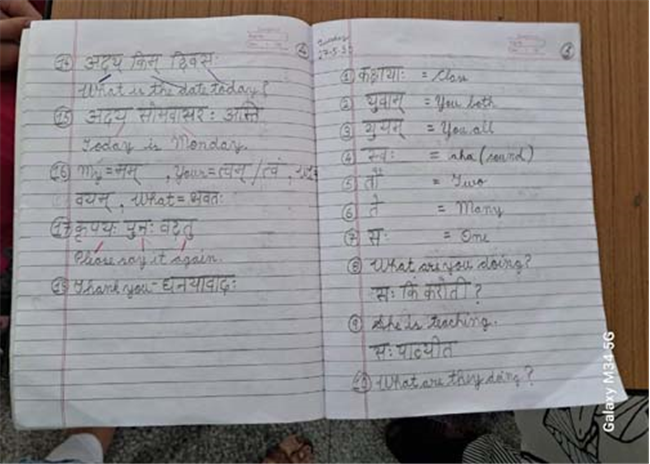 14 अदय् किम् दिवसः
What is the date today?
15 अदय् सोमवासर: अस्ति
Today is Monday.
16 My = मम् , Your = त्वन् / त्वं ,
वयन् , What = भवतः
17 कृपयः पुनः वदतु
Please say it again.
18 Thank you - धनयावादः
Sunday
1 कक्षायाः = Class
2 युवान् = You both
3 युयम् = You all
4 स्वः = aha (sound)
5 तौ = Two
6 ते = Many
7 सः = One
8 What are you doing?
सः किं करोती ?
9 She is teaching.
सः पाठयीत
10 What are they doing?
Galaxy M34 5G